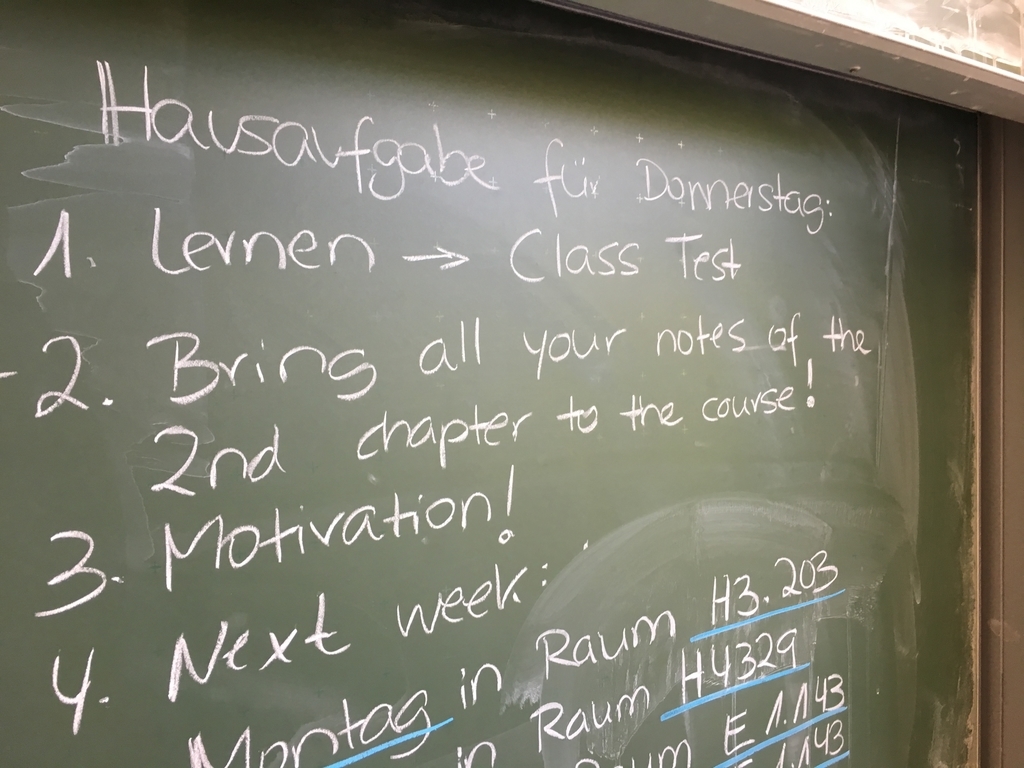 Hausaufgabe für Donnerstag:
1. Lernen → Class Test
2. Bring all your notes of the
2nd chapter to the course!
3. Motivation!
4. Next week:
Montag in Raum H3.203
in Raum H4329
Raum E 1.143
E 1.143